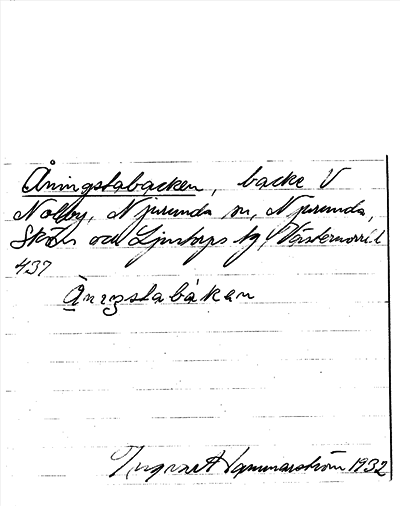 Åningstabacken, backe V
Nolby, Njurunda sn, Njurunda,
Sköns och Ljustorps tg, Västernorrl
437
Åningstabákan
Ingvar Hammarström 1932